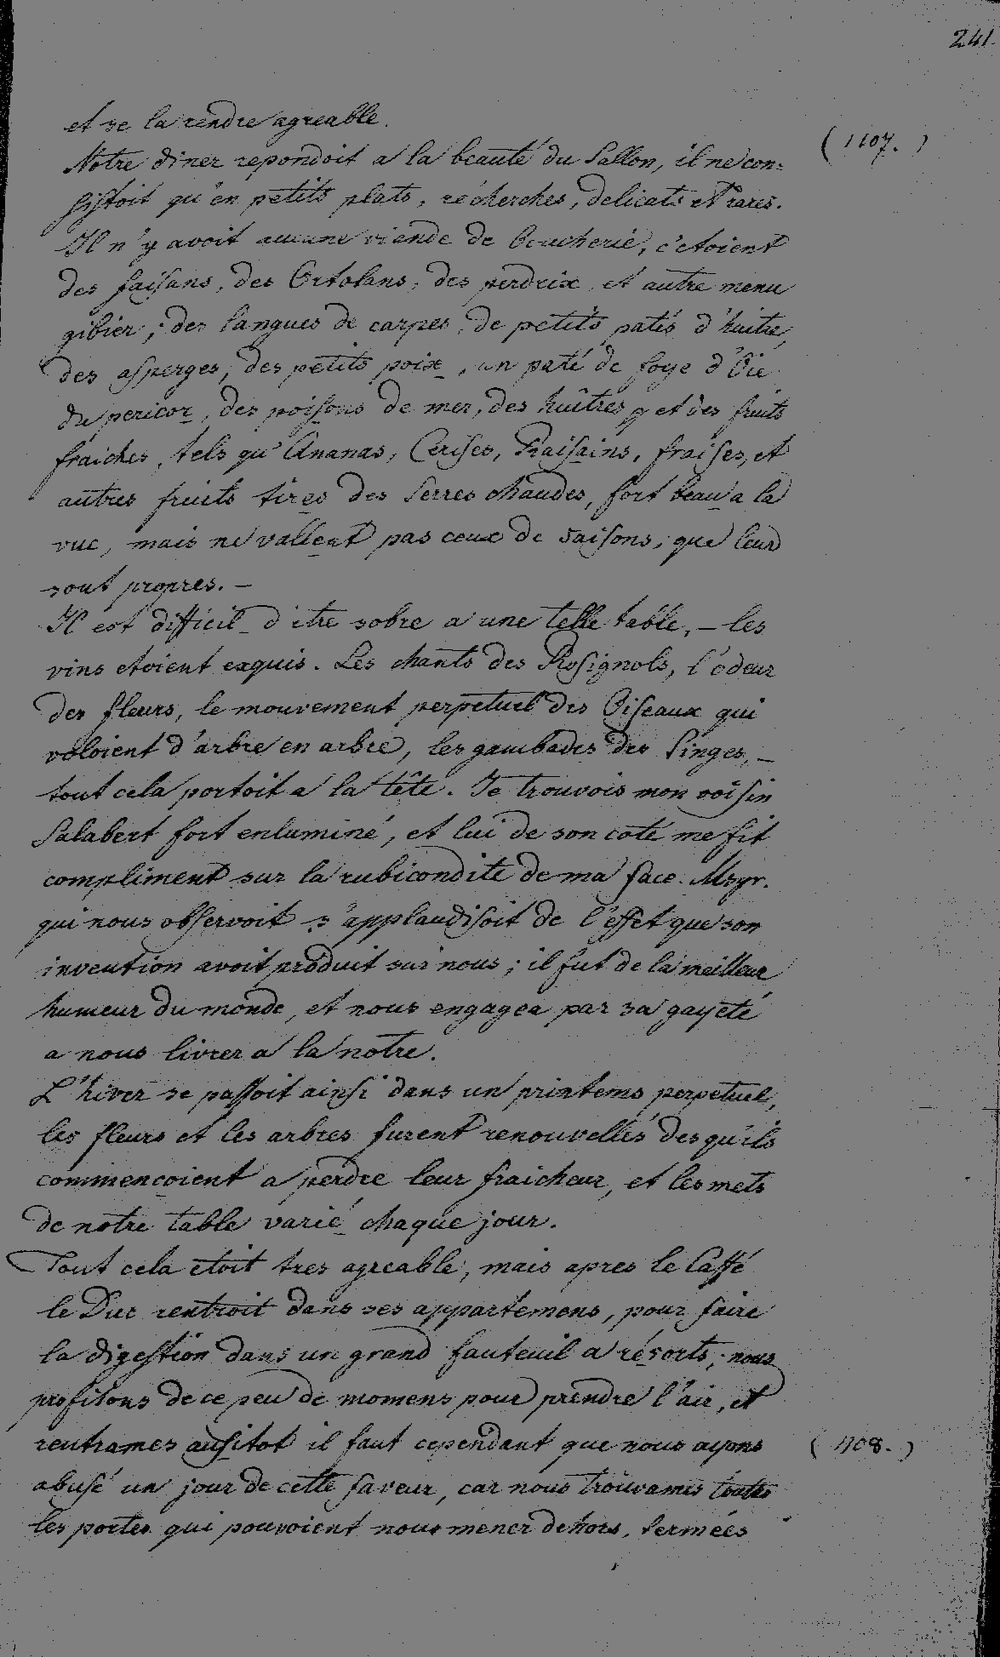 241.
et se la rendre agreable.
(1107.)
Notre diner repondoit a la beauté du Sallon, il ne con=
sistoit qu'en petits plats, recherches, delicats et rares.
Il n'y avoit aucune viende de boucherie, c'etoient
des faisans, des Ortolans, des perdrix, et autre menu
gibier; des langues de carpes, de petits patés d'huitre,
des asperges, des petits poix, un paté de foye d'Oie
du pericor, des poisons de mer, des huîtres, et des fruits
fraiches, tels qu'Ananas, Cerises, Raisains, fraises, et
autres fruits tires des Serres chaudes, fort beau a la
vue, mais ne vallent pas ceux de saisons, que leur
sont propres. —
Il est difficil d'itre sobre a une telle table, — les
vins etoient exquis. Les chants des Rosignols, l'ódeur
des fleurs, le mouvement perpetuel des Oiseaux qui
voloient d'arbre en arbre, les gambades des Singes, —
tout cela portoit a la tête. Je trouvois mon voisin
Salabert fort enluminé, et lui de son coté me fit
compliment sur la rubicondite de ma face. Msgr.
qui nous observoit s'applaudisoit de l'effet que son
invention avoit produit sur nous; il fut de la meilleur
humeur du monde, et nous engagea par sa gayeté
a nous livrer a la notre.
L'hiver se passoit ainsi dans un printems perpetuel,
les fleurs et les arbres furent renouvellés des qu'ils
commencoient a perdre leur fraicheur, et les mets
de notre table varié chaque jour.
Tout cela etoit tres agreable, mais apres le Caffé
le Duc rentroit dans ses appartemens, pour faire
la digestion dans un grand fauteuil a résorts; nous
profitons de ce peu de momens pour prendre l'air, et
rentrames ausitot il faut cependant que nous ayons
(1108.)
abusé un jour de cette faveur, car nous trouvames toutes
les portes qui pouvoient nous mener dehors, fermées